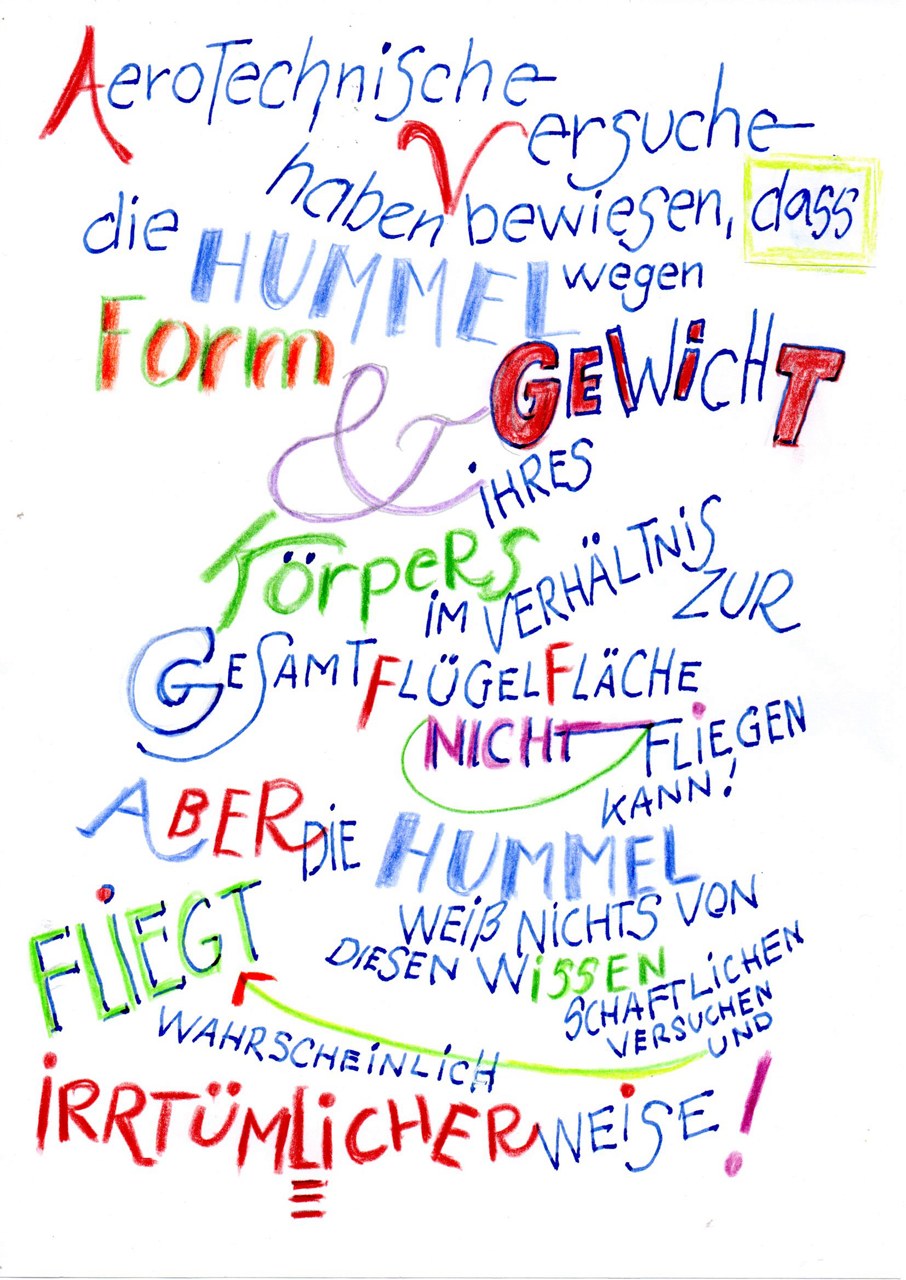 AeroTechnische
Versuche
haben bewiesen, dass
die HUMMEL wegen
Form
& GEWiCHT
iHRES
KörpeRS
iM VERHÄLTNiS
ZUR
GESAMTFLÜGELFLÄCHE
NICHT FLiEGEN
KANN!
ABER DIE HUMMEL
WEiß NiCHTS VON
DIESEN WiSSEN
SCHAFTLiCHEN
VERSUCHEN
UND
FLIEGT
WAHRSCHEiNLiCH
iRRTÜMLiCHERWEiSE!